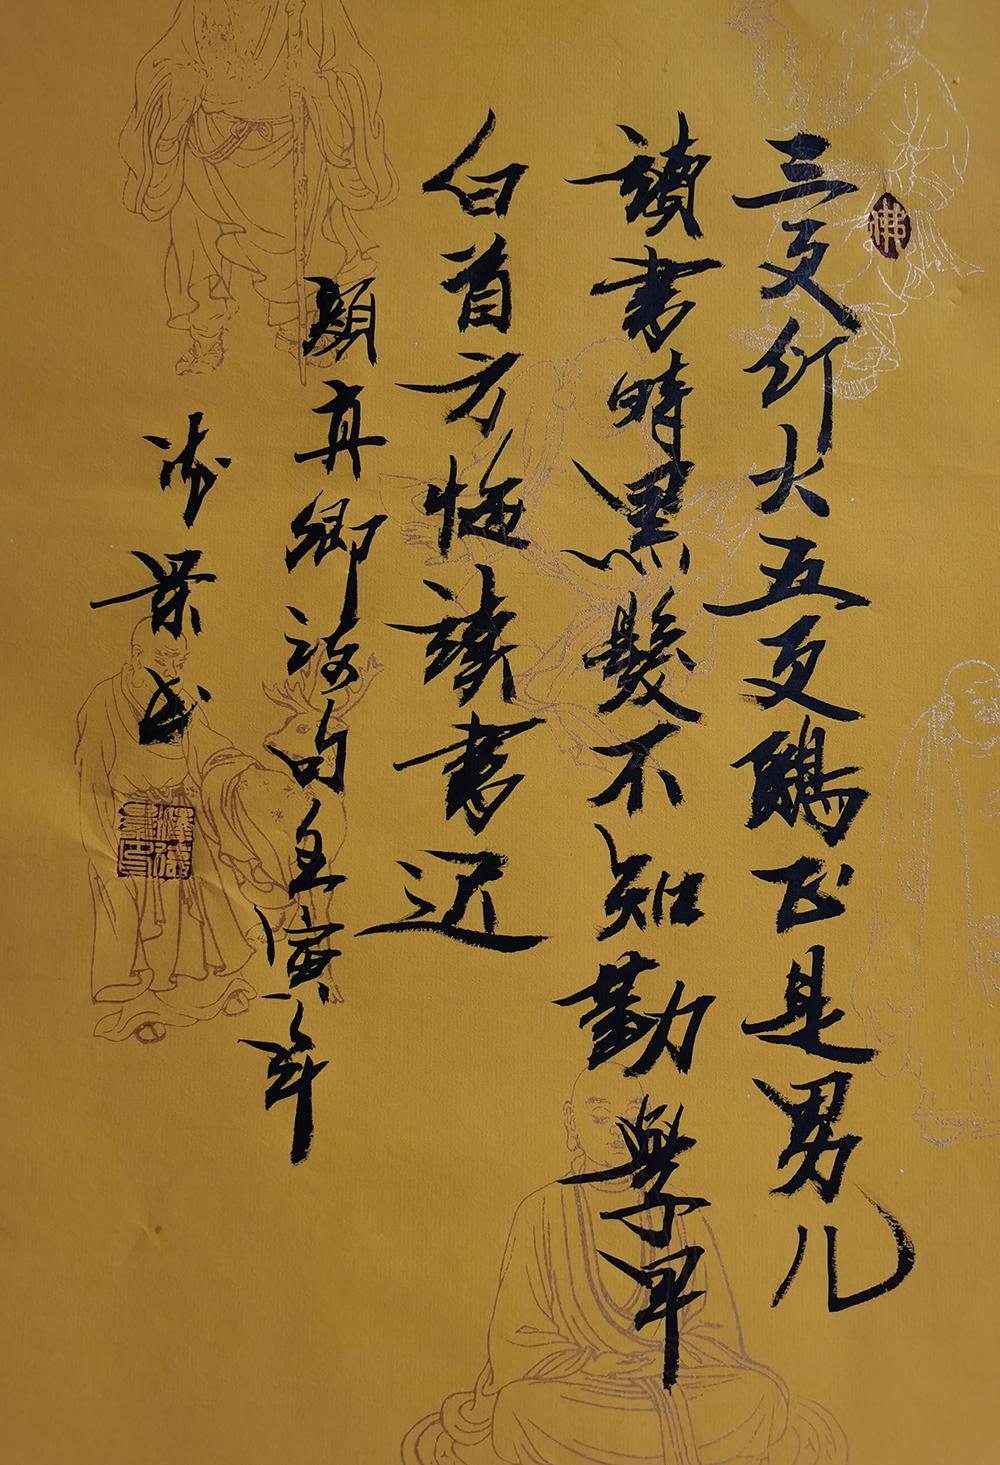 佛
三更灯火五更鷄正是男儿
讀書時黑髮不知勤學早
白首方悔讀書迟
顔真卿诗句壬寅年
书